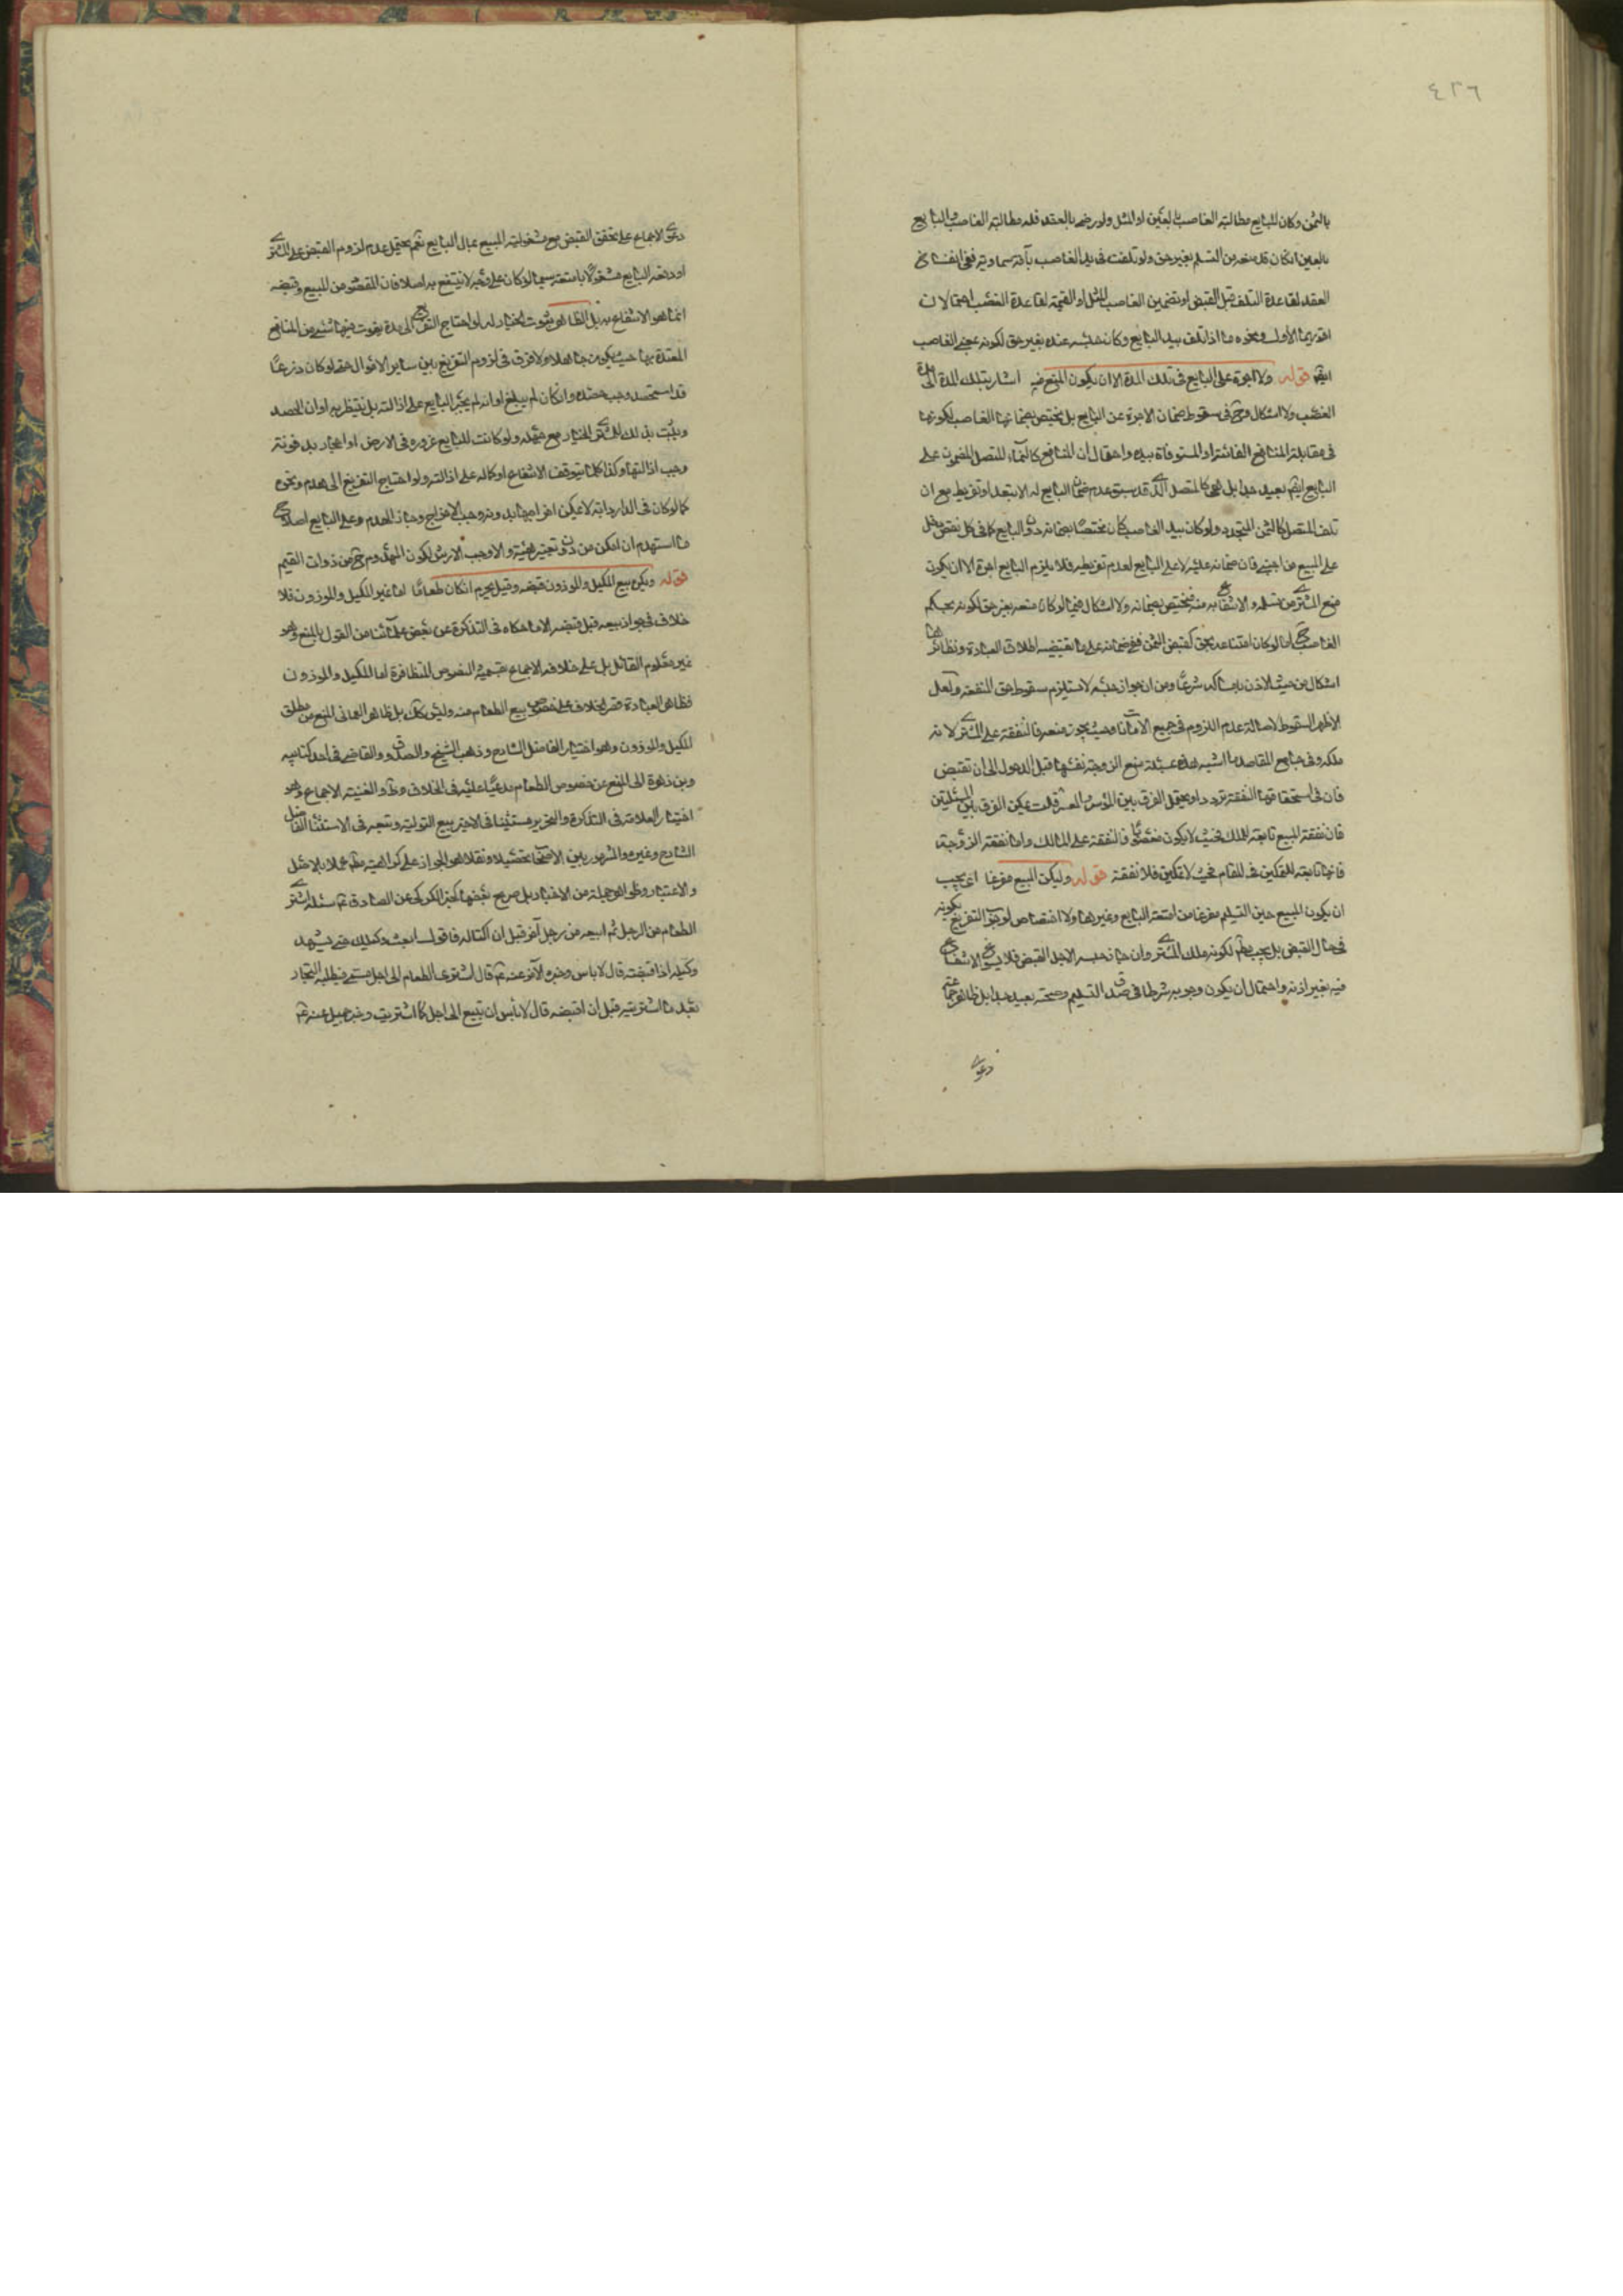 ٤٢٦
بالثمن وكان للبايع مطالبة الغاصب بالعين او المثل ولو رضى بالعقد فله مطالبة الغاصب والبايع
بالعين ان كان قد منعه من التسلم بغير حق ولو تلفت فى يد الغاصب بآفة سماوية ففى انفساخ
العقد لقاعدة التلف قبل القبض او تضمين الغاصب المثل او القيمة لقاعدة الغصب احتمالان
اقويهما الأول ونحوه ما اذا تلف بيد البايع وكان حبسه عنده بغير حق لكونه الغاصب
ايضا قوله ولا اجرة على البايع فى تلك المدة الا ان يكون المنع منه اشار بتلك المدة الى مدة
الغصب ولا اشكال وح فى سقوط ضمان الاجرة عن البايع بل يختص بضمانها الغاصب لكونها
فى مقابلة المنافع الفائتة او المستوفاة بيده واحتمال ان المنافع كالنماء المتصل المضمون على
البايع ايضم بعيد جدا بل هى كالمتصل الذى قد سبق عدم ضمان البايع له الا بتعد او تفريط مع ان
تلف المتصل كالثمن المتجدد ولو كان بيد الغاصب كان مختصا بضمانه دون البايع كما فى كل نقص دخل
على المبيع من اجنبى فان ضمانه عليه لا على البايع لعدم تفريطه فلا يلزم البايع اجرة الا ان يكون
منع المشترى من تسلمه والانتفاع به منه فيختص بضمانه ولا اشكال فيما لو كان منعه بغير حق لكونه بحكم
الغاصب ح اما لو كان امتناعه بحق كقبض الثمن ففى ضمانه على ما يقتضيه اطلاق العبارة ونظائرها
اشكال من حيث الاذن بامساكه شرعا ومن ان جواز حبسه لا يستلزم سقوط حق المنفعة ولعل
الاظهر السقوط لاصالة عدم اللزوم فى جميع الامانات وحيث يجوز منعه فالنفقة على المشترى لانه
ملكه وفى جامع المقاصد ما اشبه هذه بمسئلة منع الزوجة نفسها قبل الدخول الى ان تقبض
فان فى استحقاقها النفقة تردد او يحتمل الفرق بين الموسر والمعسر قلت يمكن الفرق بين المسئلتين
فان نفقة المبيع تابعة للملك فحيث لا يكون مغصوبا فالنفقة على المالك واما نفقة الزوجة
فانها تابعة للتمكين فى المقام فحيث لا تمكين فلا نفقة قوله وليكن المبيع مفرغا اى يجب
ان يكون المبيع حين التسليم مفرغا من امتعة البايع وغيرها ولا اختصاص لوجوب التفريغ بكونه
فى حال القبض بل يجب مطم لكونه ملك المشترى وان جاز حبسه لاجل القبض فلا يسوغ الانتفاع
فيه بغير اذنه واحتمال ان يكون وجوبه شرطا فى صدق التسليم وصحته بعيد جدا بل ظاهر جماعة
دعوى
دعوى الاجماع على تحقق القبض مع مشغولية المبيع بمال البايع نعم يحتمل عدم لزوم القبض على المشترى
لو دفعه البايع مشغولا بامتعته سيما لو كان على وجه لا ينتفع به اصلا فان المقصود من المبيع وقبضه
انما هو الانتفاع به بل الظاهر ثبوت الخيار له لو احتاج التفريغ الى مدة يفوت فيها شىء من المنافع
المعتدة بها حيث يكون جاهلا ولا فرق فى لزوم التفريغ بين ساير الاموال حتى لو كان زرعا
قد استحصد وجب حصده وان كان لم يبلغ اوانه لم يجبر البايع على ازالته بل ينتظر به اوان الحصد
ويثبت بذلك للمشترى الخيار مع جهله ولو كانت للبايع عروق فى الارض او احجار مدفونة
وجب ازالتها وكذا كلما يتوقف الانتفاع او كماله على ازالته ولو احتاج التفريغ الى هدم ونحوه
كما لو كان فى الدار دابة لا يمكن اخراجها بدونه وجب الاخراج وجاز الهدم وعلى البايع اصلاح
ما استهدم ان امكن من دون تغيير هيئة والا وجب الارش لكون المهدوم ح من ذوات القيم
قوله ويكره بيع المكيل والموزون قبل قبضه وقيل يحرم ان كان طعاما اما غير المكيل والموزون فلا
خلاف فى جواز بيعه قبل قبضه الا ما حكاه فى التذكرة عن بعض علمائنا من القول بالمنع وهو
غير معلوم القائل بل على خلافه الاجماع بقسميه النصوص المتظافرة اما المكيل والموزون
فظاهر العبارة قصر الخلاف على خصوص بيع الطعام منه وليس كك بل ظاهر العمانى المنع من مطلق
المكيل والموزون وهو اختيار الفاضل الشارح وذهب الشيخ والصدوق والقاضى فى احد كتابيه
وبن زهرة الى المنع عن خصوص الطعام مدعيا عليه فى الخلاف وط والغنية الاجماع وهو
اختيار العلامة فى التذكرة والتحرير مستثنيا فى الاخير بيع التولية وتبعه فى الاستثناء الفاضل
الشارح وغيره والمشهور بين الاصحاب تحصيلا ونقلا هو الجواز على كراهية مطم عملا بالاصل
والاعتبار وظواهر جملة من الاخبار بل صريح بعضها كخبر الكرخى عن الصادق ع سئله اشترى
الطعام من الرجل ثم ابيعه من رجل آخر قبل ان اكتاله فاقول ابعث وكيلك حتى يشهد
وكيله اذا قبضته قال لا باس وخبره الآخر عنه ع قال اشترى الطعام الى اجل مسمى فيطلبه التجار
بعد ما اشتريته قبل ان اقبضه قال لا بأس ان تبيع الى اجل كما اشتريت وخبر جميل عنه ع